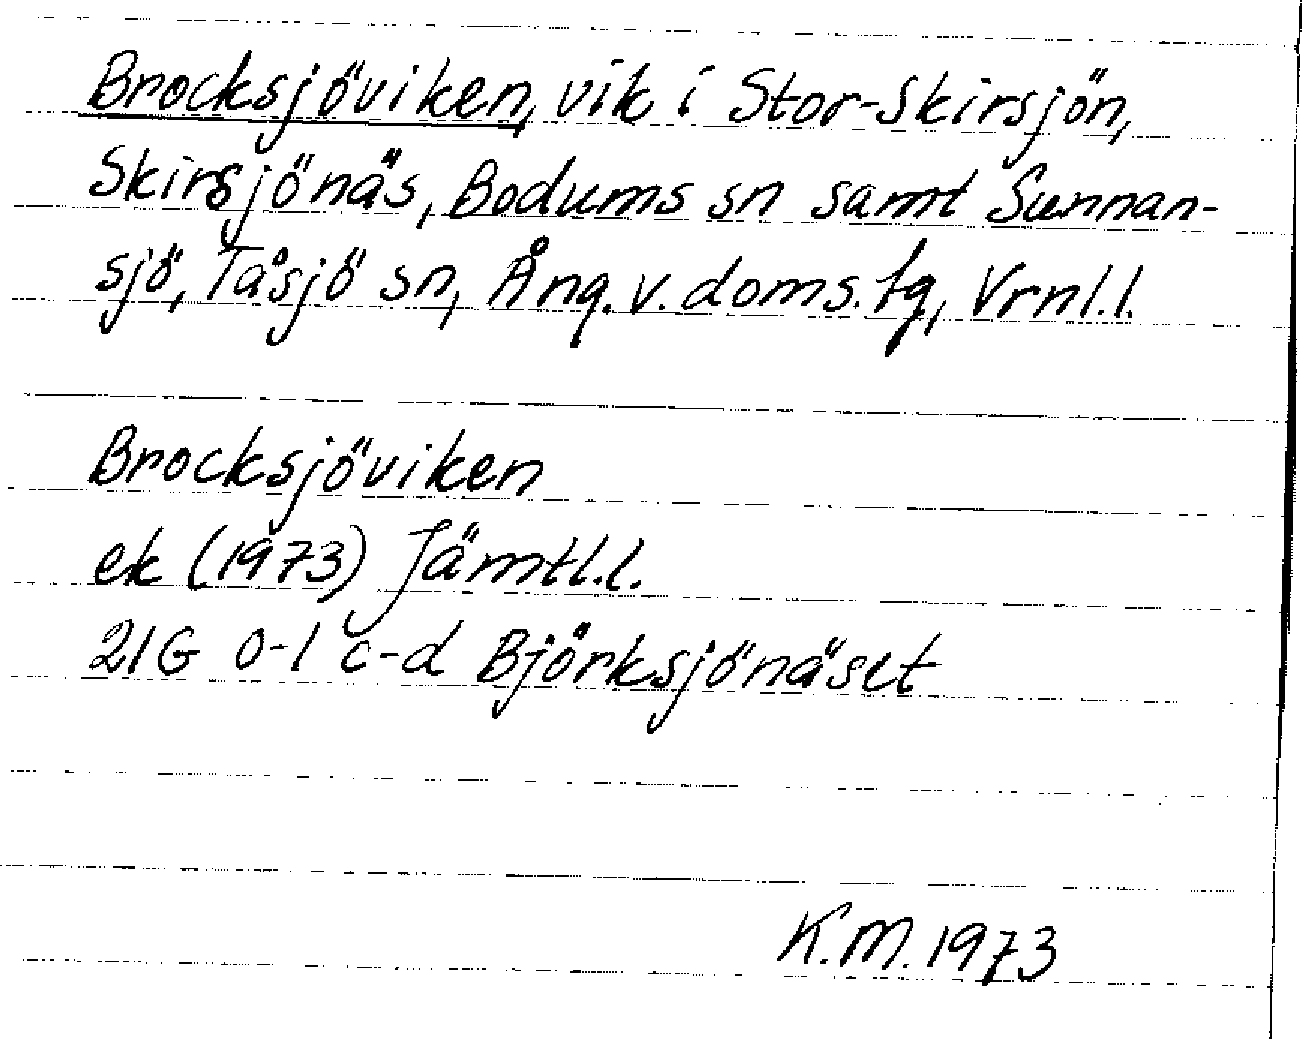 Brocksjöviken, vik i Stor-Skirsjön,
Skirsjönäs, Bodums sn samt Sunnan-
sjö, Tåsjö sn, Ång. v. doms. tg, Vrnl.l.
Brocksjöviken
ek (1973) Jämtl.l.
21G 0-1 c-d Björksjönäset
K.M. 1973